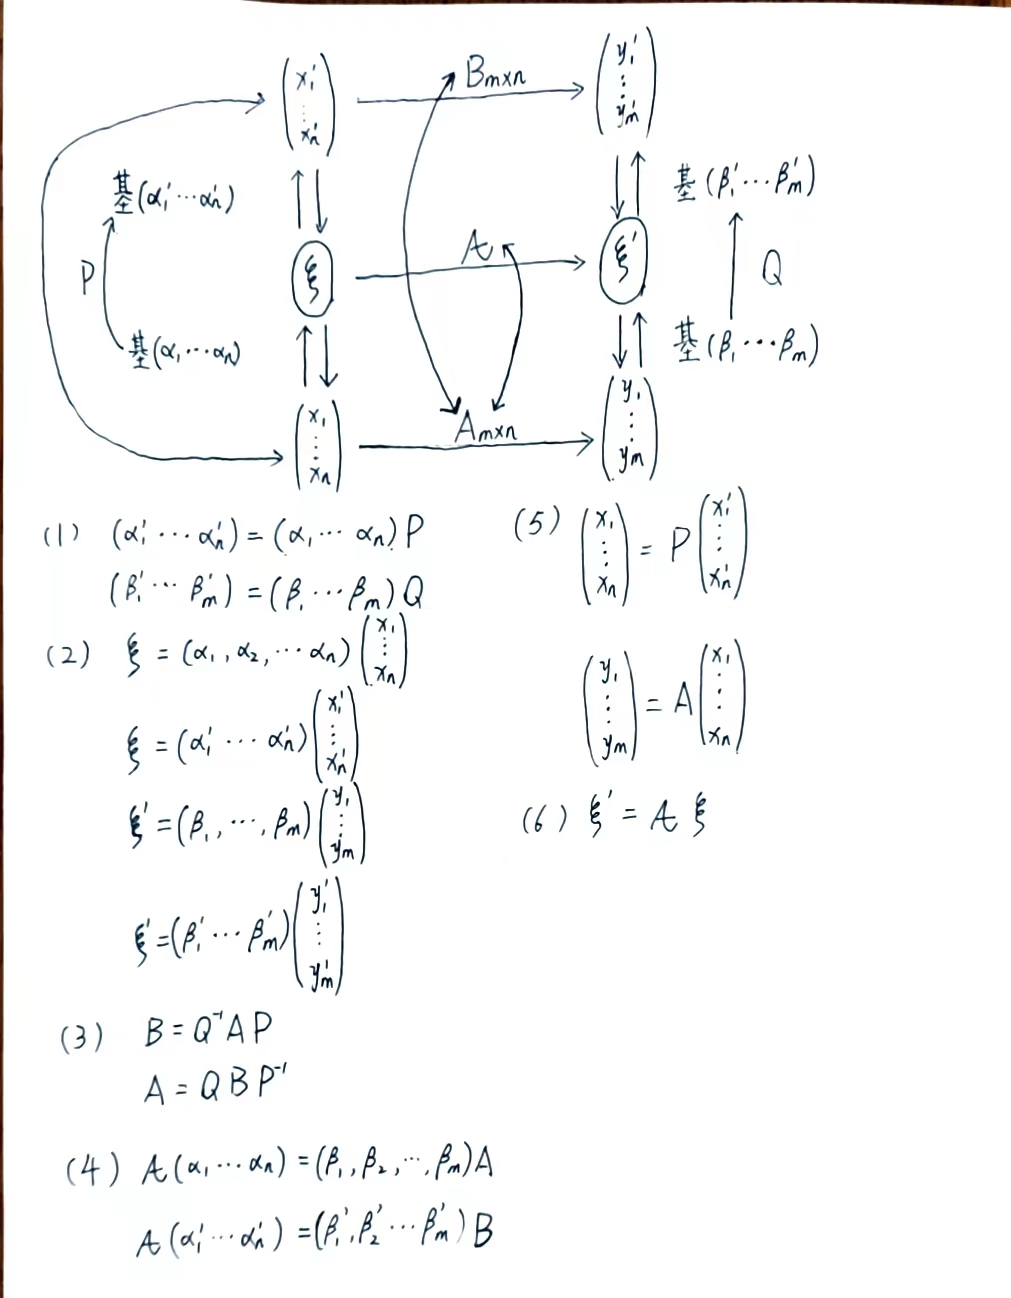 (x₁′ ⋮ xₙ′) → B_{m×n} (y₁′ ⋮ yₘ′)
基(α₁′⋯αₙ′)
基(β₁′⋯βₘ′)
P
ξ
𝒜
ξ′
Q
基(α₁⋯αₙ)
基(β₁⋯βₘ)
(x₁ ⋮ xₙ) → A_{m×n} (y₁ ⋮ yₘ)
(1) (α₁′⋯αₙ′) = (α₁⋯αₙ)P
(β₁′⋯βₘ′) = (β₁⋯βₘ)Q
(2) ξ = (α₁,α₂,⋯αₙ)(x₁ ⋮ xₙ)
ξ = (α₁′⋯αₙ′)(x₁′ ⋮ xₙ′)
ξ′ = (β₁,⋯,βₘ)(y₁ ⋮ yₘ)
ξ′ = (β₁′⋯βₘ′)(y₁′ ⋮ yₘ′)
(3) B = Q⁻¹AP
A = QBP⁻¹
(4) 𝒜(α₁⋯αₙ) = (β₁,β₂,⋯,βₘ)A
𝒜(α₁′⋯αₙ′) = (β₁′,β₂′⋯βₘ′)B
(5) (x₁ ⋮ xₙ) = P(x₁′ ⋮ xₙ′)
(y₁ ⋮ yₘ) = A(x₁ ⋮ xₙ)
(6) ξ′ = 𝒜ξ